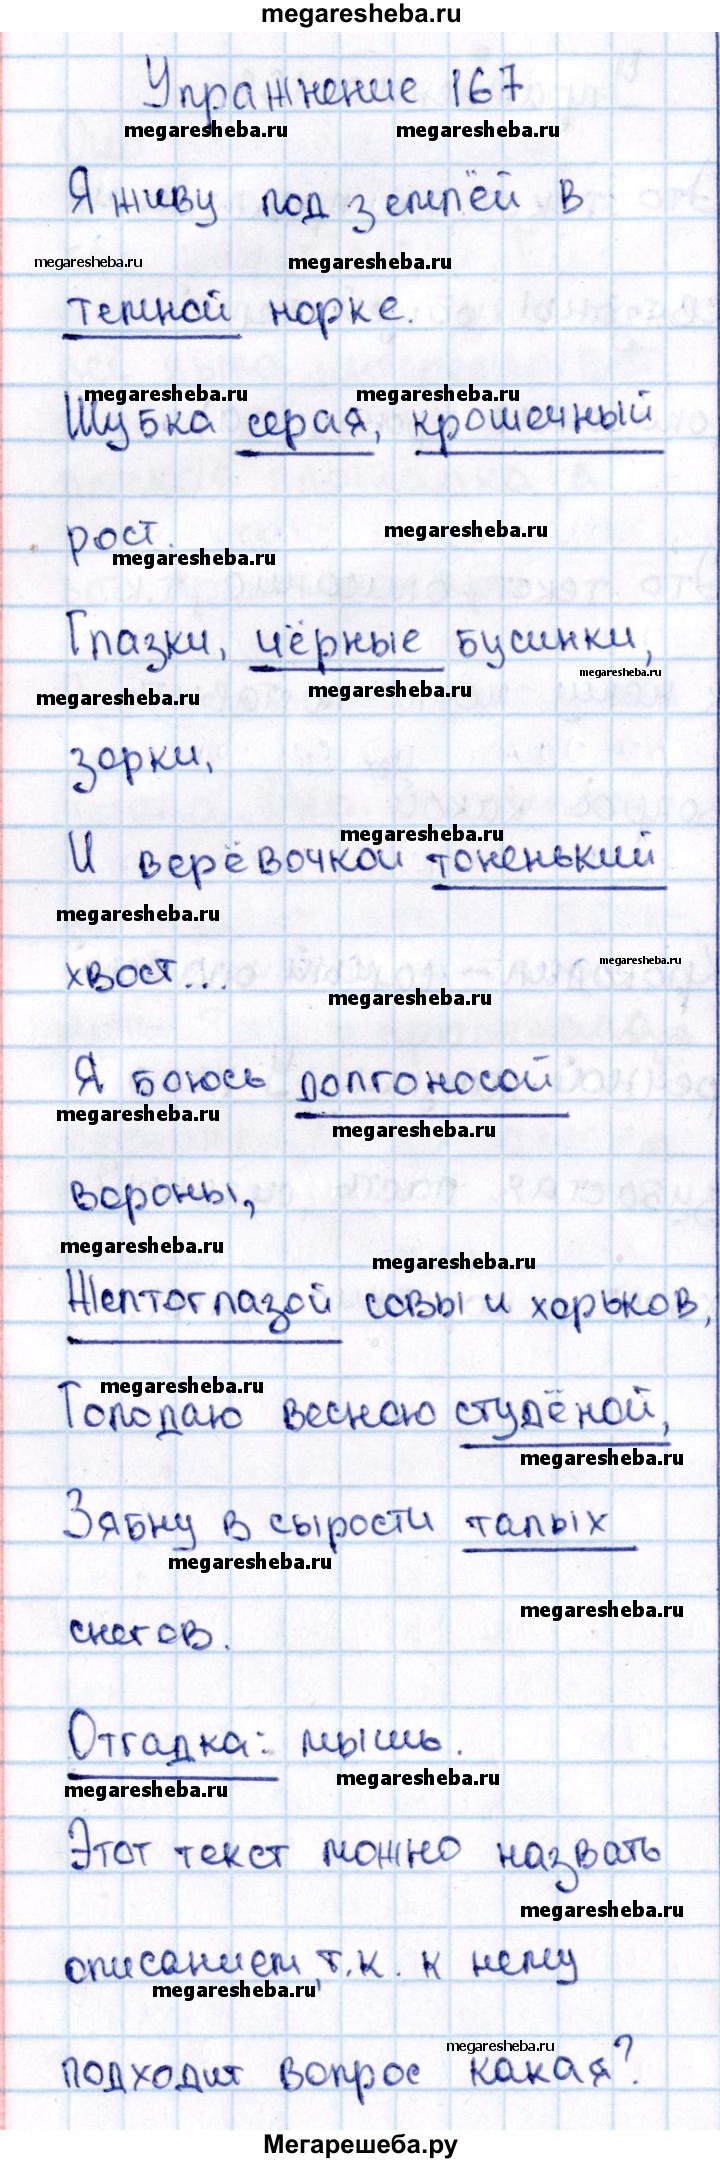 megaresheba.ru
Упражнение 167
megaresheba.ru megaresheba.ru
Я живу под землёй в
megaresheba.ru megaresheba.ru
темной норке.
megaresheba.ru megaresheba.ru
Шубка серая, крошечный
megaresheba.ru
рост.
megaresheba.ru
Глазки, чёрные бусинки,
megaresheba.ru
megaresheba.ru megaresheba.ru
зорки,
megaresheba.ru
И верёвочкой тоненький
megaresheba.ru
хвост...
megaresheba.ru
megaresheba.ru
Я боюсь долгоносой
megaresheba.ru
megaresheba.ru
вороны,
megaresheba.ru
megaresheba.ru
Желтоглазой совы и хорьков,
megaresheba.ru
Голодаю весною студёной,
megaresheba.ru
Зябну в сырости талых
megaresheba.ru
megaresheba.ru
снегов.
Отгадка: мышь.
megaresheba.ru megaresheba.ru
Этот текст можно назвать
megaresheba.ru
описанием, т.к. к нему
megaresheba.ru
megaresheba.ru
подходит вопрос какая?
Мегарешеба.ру